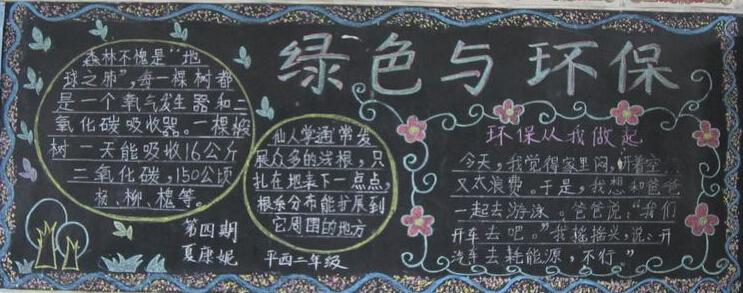 绿色与环保
森林不愧是“地
球之肺”，每一棵树都
是一个氧气发生器和二
氧化碳吸收器。一棵椴
树一天能吸收16公斤
二氧化碳，150公顷
杨、柳、槐等。
仙人掌通常发
展众多的浅根，只
扎在地表下一点点，
根系分布能扩展到
它周围的地方
第四期
夏康妮
平西二年级
环保从我做起
今天，我觉得家里闷，开着空
又太浪费。于是，我想和爸爸
一起去游泳。爸爸说：“我们
开车去吧。”我摇摇头，说：开
汽车去耗能源，不行”